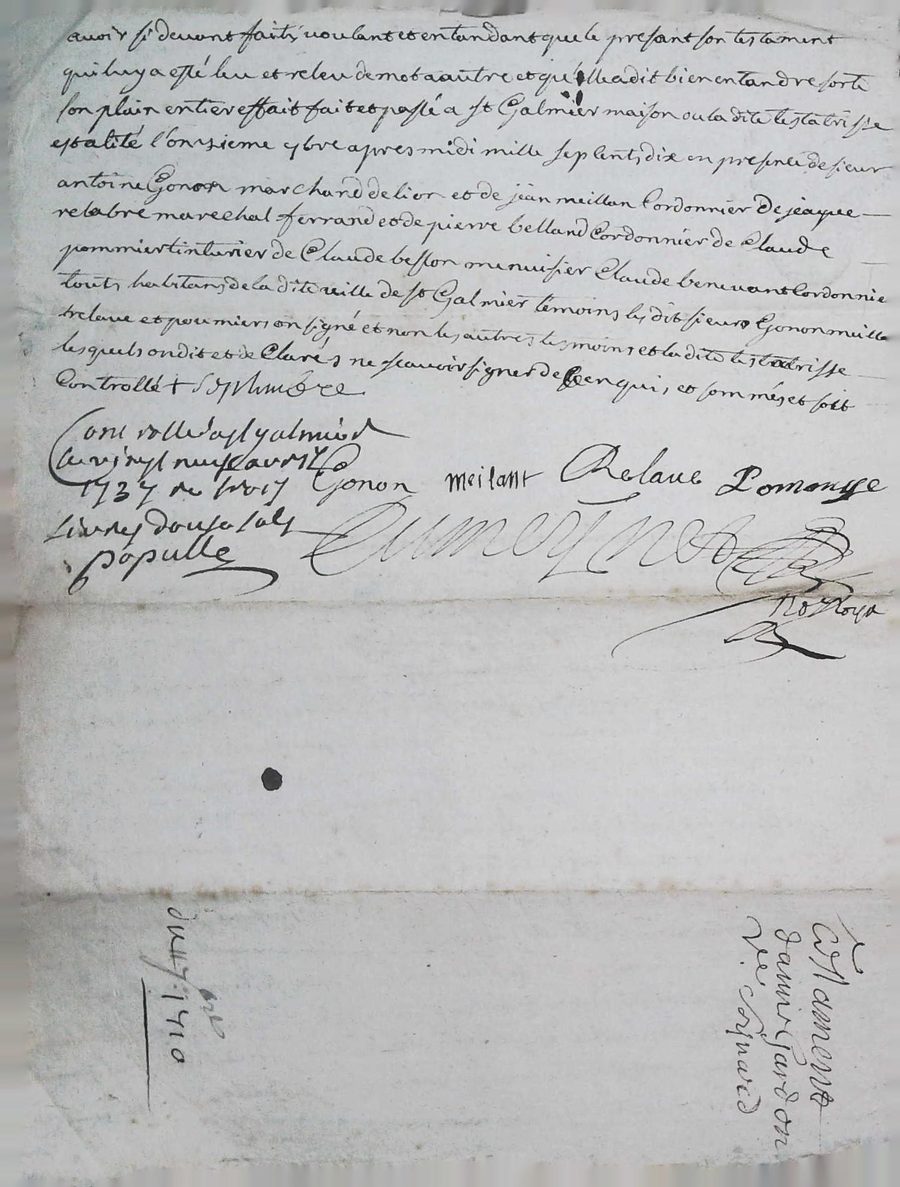 avoir si devant faits voulant et entandant que le presant son testament
qui luy a esté leu et releu de mot a autre et qu'elle a dit bien entandre sorte
son plain entier effait fait et passé a st Galmier maison ou la dite testatrisse
est alité l'onzieme 9bre apres midi mille sept cents dix en presence de sieur
antoine Gonon marchand de lion et de jean meillan Cordonnier De jaque
relabre marechal ferrand et de pierre belland Cordonnier de Claude
pommier tinturier de Claude besson menuisier Claude benevant Cordonnie
touts habitans de la dite ville de st Galmier temoins les dit sieurs Gonon meilla
relave et poumier on signé et non les autres tesmoins et la dite testatrisse
lesquels on dit et declarés ne scavoir signer de enquis et sommés et soit
Controllé
Controllé a st galmier
le vingt neuf avril
1737
Gonon meilant Relave Pomeuye
livres douse sols
populle
Dumeynet
No Roya
du 11 9bre 1710
Testament
danne Gardon
Ve